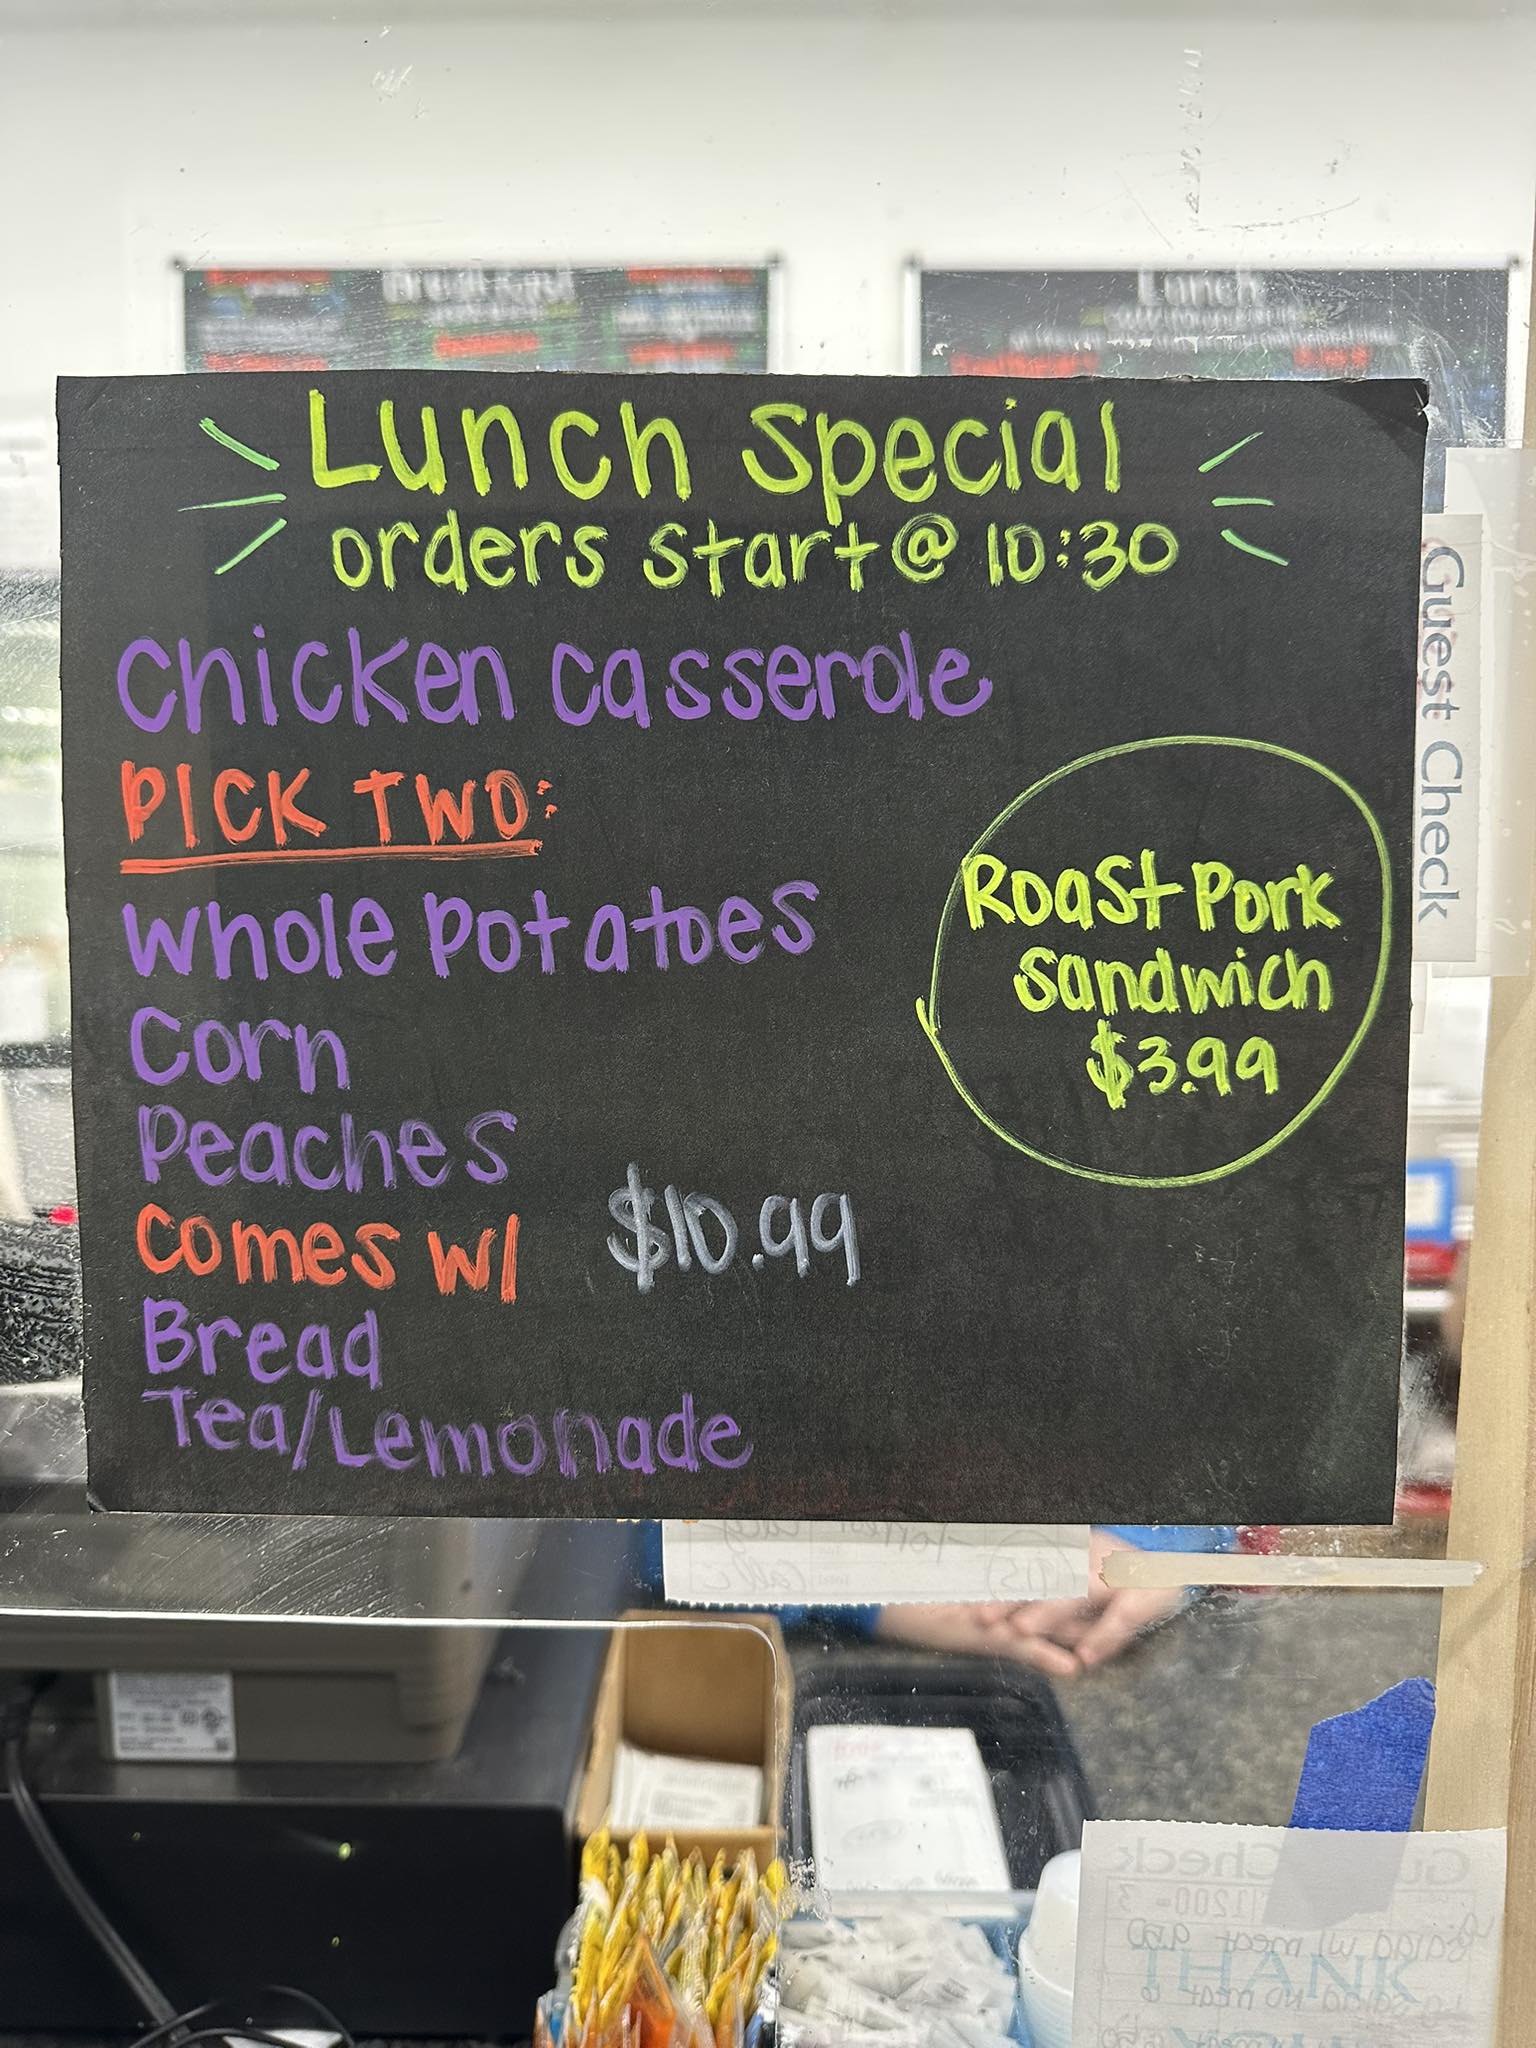 Lunch
Lunch Special
orders start @ 10:30
Chicken casserole
PICK TWO:
Whole potatoes
Corn
Peaches
Comes w/
$10.99
Bread
Tea/Lemonade
Roast Pork
Sandwich
$3.99
Guest Check
Guest Check
THANK